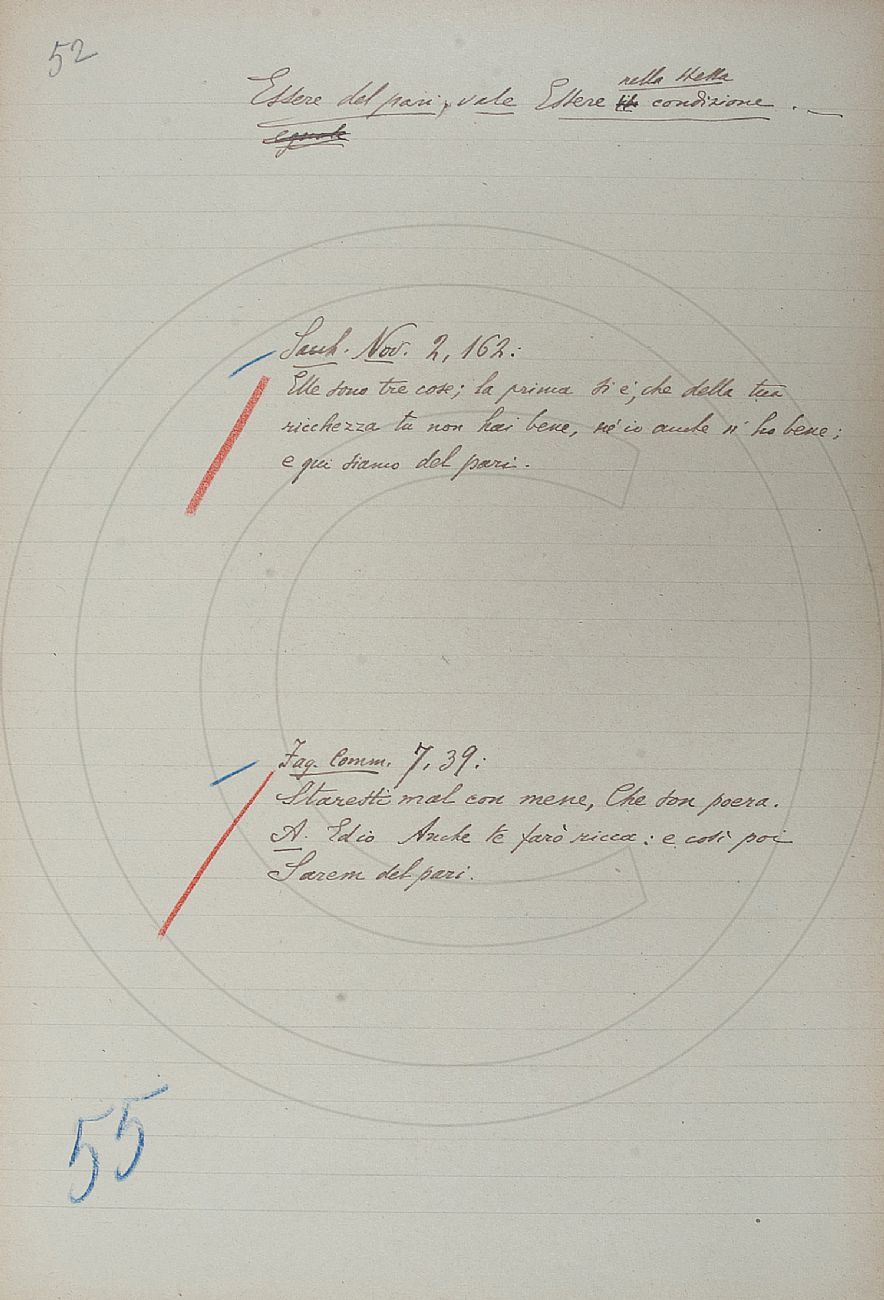 52
nella stessa
Essere del pari, vale Essere in condizione. —
eguale
Sacch. Nov. 2, 162:
Elle sono tre cose; la prima si è, che della tua
ricchezza tu non hai bene, nè io anche n' ho bene;
e qui siamo del pari.
Fag. Comm. 7, 39:
Staresti mal con mene, Che son poera.
A. Ed io Anche te farò ricca: e così poi
Sarem del pari.
55